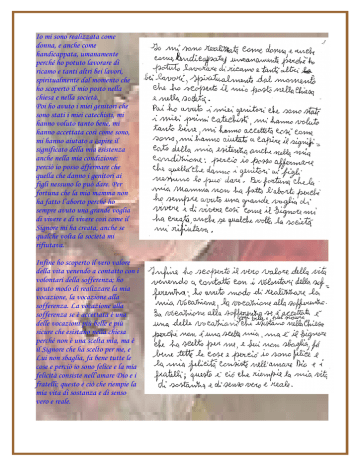 Io mi sono realizzata come
donna, e anche come
handicappata, umanamente
perché ho potuto lavorare di
ricamo e tanti altri bei lavori,
spiritualmente dal momento che
ho scoperto il mio posto nella
chiesa e nella società.
Poi ho avuto i miei genitori che
sono stati i miei catechisti, mi
hanno voluto tanto bene, mi
hanno accettata così come sono,
mi hanno aiutato a capire il
significato della mia esistenza
anche nella mia condizione:
perciò io posso affermare che
quella che danno i genitori ai
figli nessuno lo può dare. Per
fortuna che la mia mamma non
ha fatto l'aborto perché ho
sempre avuto una grande voglia
di vivere e di vivere così come il
Signore mi ha creata, anche se
qualche volta la società mi
rifiutava.
Infine ho scoperto il vero valore
della vita venendo a contatto con i
volontari della sofferenza; ho
avuto modo di realizzare la mia
vocazione, la vocazione alla
sofferenza. La vocazione alla
sofferenza se è accettata è una
delle vocazioni più belle e più
sicure che esistano nella chiesa
perché non è una scelta mia, ma è
il Signore che ha scelto per me, e
Lui non sbaglia, fa bene tutte le
cose e perciò io sono felice e la mia
felicità consiste nell'amare Dio e i
fratelli; questo è ciò che riempie la
mia vita di sostanza e di senso
vero e reale.
Io mi sono realizzata come donna e anche
come handicappata umanamente perché ho
potuto lavorare di ricamo e tanti altri
bei lavori, spiritualmente dal momento
che ho scoperto il mio posto nella chiesa
e nella società.
Poi ho avuto i miei genitori che sono stati
i miei primi catechisti, mi hanno voluto
tanto bene, mi hanno accettata così come
sono, mi hanno aiutata a capire il signifi-
cato della mia esistenza anche nella mia
condizione: perciò io posso affermare
che quello che danno i genitori ai figli
nessuno lo può dare. Per fortuna che la
mia mamma non ha fatto l'aborto perché
ho sempre avuto una grande voglia di
vivere e di vivere così come il Signore mi
ha creata anche se qualche volta la società
mi rifiutava.
Infine ho scoperto il vero valore della vita
venendo a contatto con i volontari della sof-
ferenza; ho avuto modo di realizzare la
mia vocazione, la vocazione alla sofferenza.
La vocazione alla sofferenza se è accettata è
una delle vocazioni che esistano nella chiesa
perché non è una scelta mia, ma è il Signore
che ha scelto per me, e Lui non sbaglia, fa
bene tutte le cose e perciò io sono felice e
la mia felicità consiste nell'amare Dio e i
fratelli; questo è ciò che riempie la mia vita
di sostanza e di senso vero e reale.